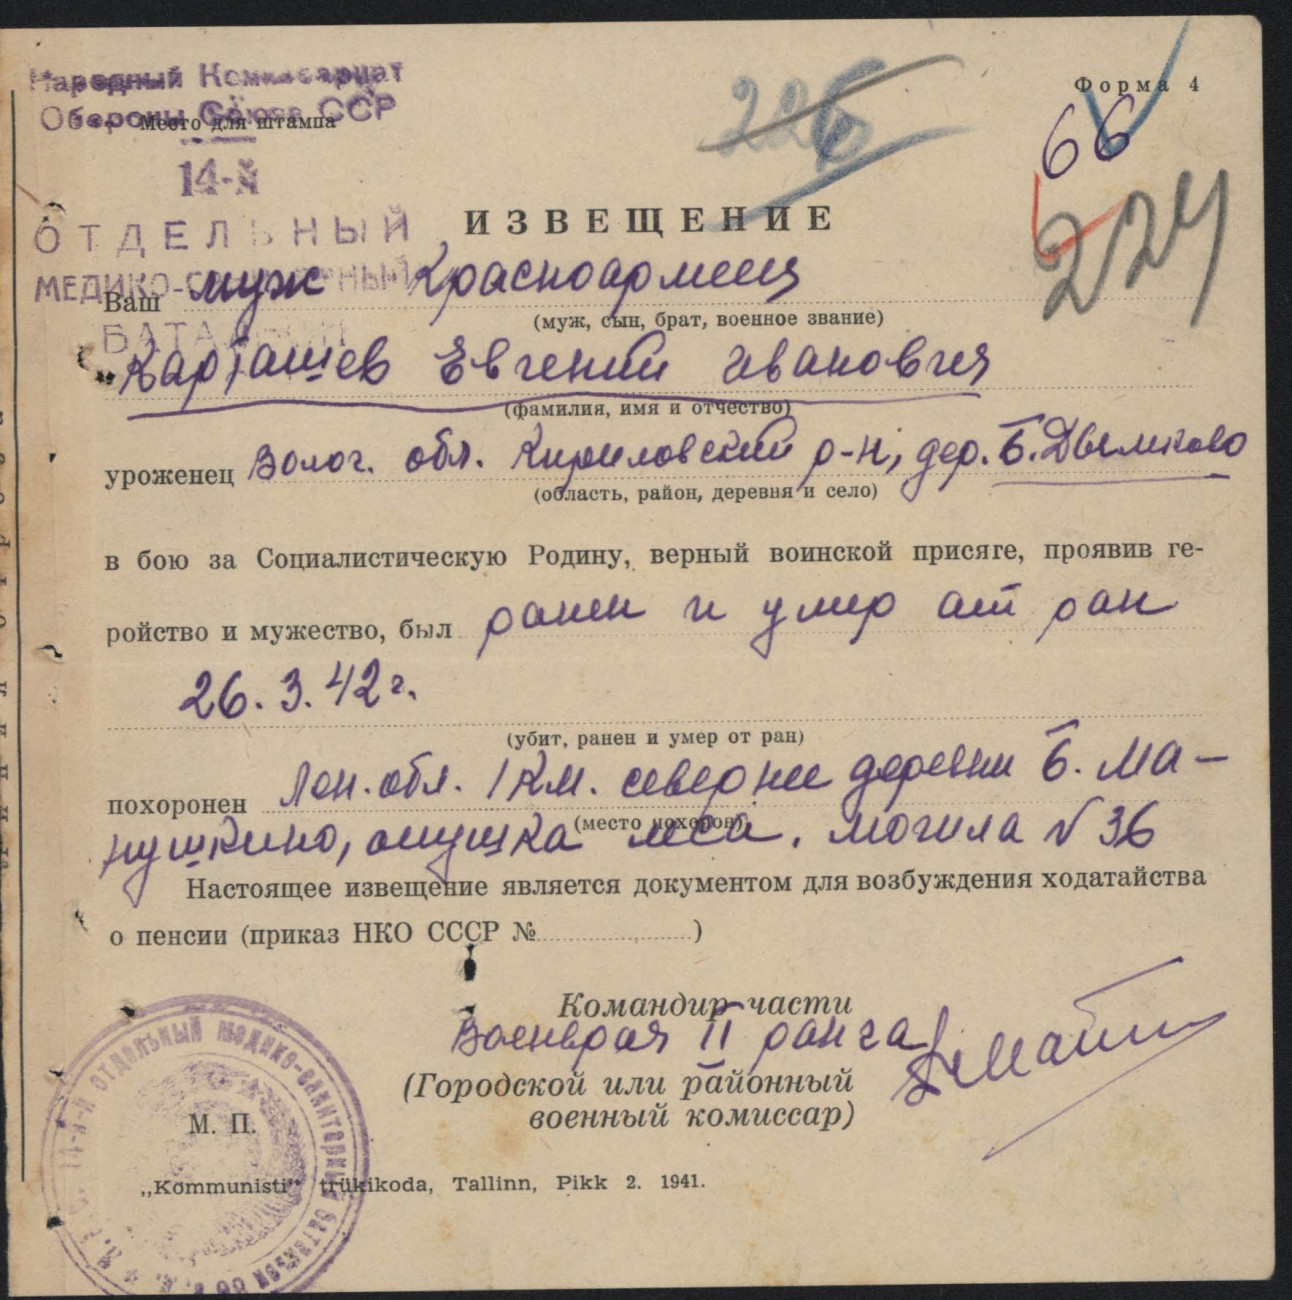 Народный Комиссариат
Обороны Союза ССР
Место для штампа
14-й
ОТДЕЛЬНЫЙ
МЕДИКО-САНИТАРНЫЙ
БАТАЛЬОН
226
Форма 4
66
224
ИЗВЕЩЕНИЕ
Ваш муж Красноармеец
(муж, сын, брат, военное звание)
Карташев Евгений Иванович
(фамилия, имя и отчество)
уроженец Волог. обл. Кириловский р-н, дер. Б. Дымково
(область, район, деревня и село)
в бою за Социалистическую Родину, верный воинской присяге, проявив ге-
ройство и мужество, был ранен и умер от ран
26.3.42 г.
(убит, ранен и умер от ран)
похоронен Лен. обл. 1 км. севернее деревни Б. Ма-
нушкино, опушка леса, могила N 36
(место похорон)
Настоящее извещение является документом для возбуждения ходатайства
о пенсии (приказ НКО СССР № )
Командир части
Военврач II ранга
(Городской или районный
военный комиссар)
М. П.
14-й ОТДЕЛЬНЫЙ МЕДИКО-САНИТАРНЫЙ БАТАЛЬОН
„Kommunisti" trükikoda, Tallinn, Pikk 2. 1941.